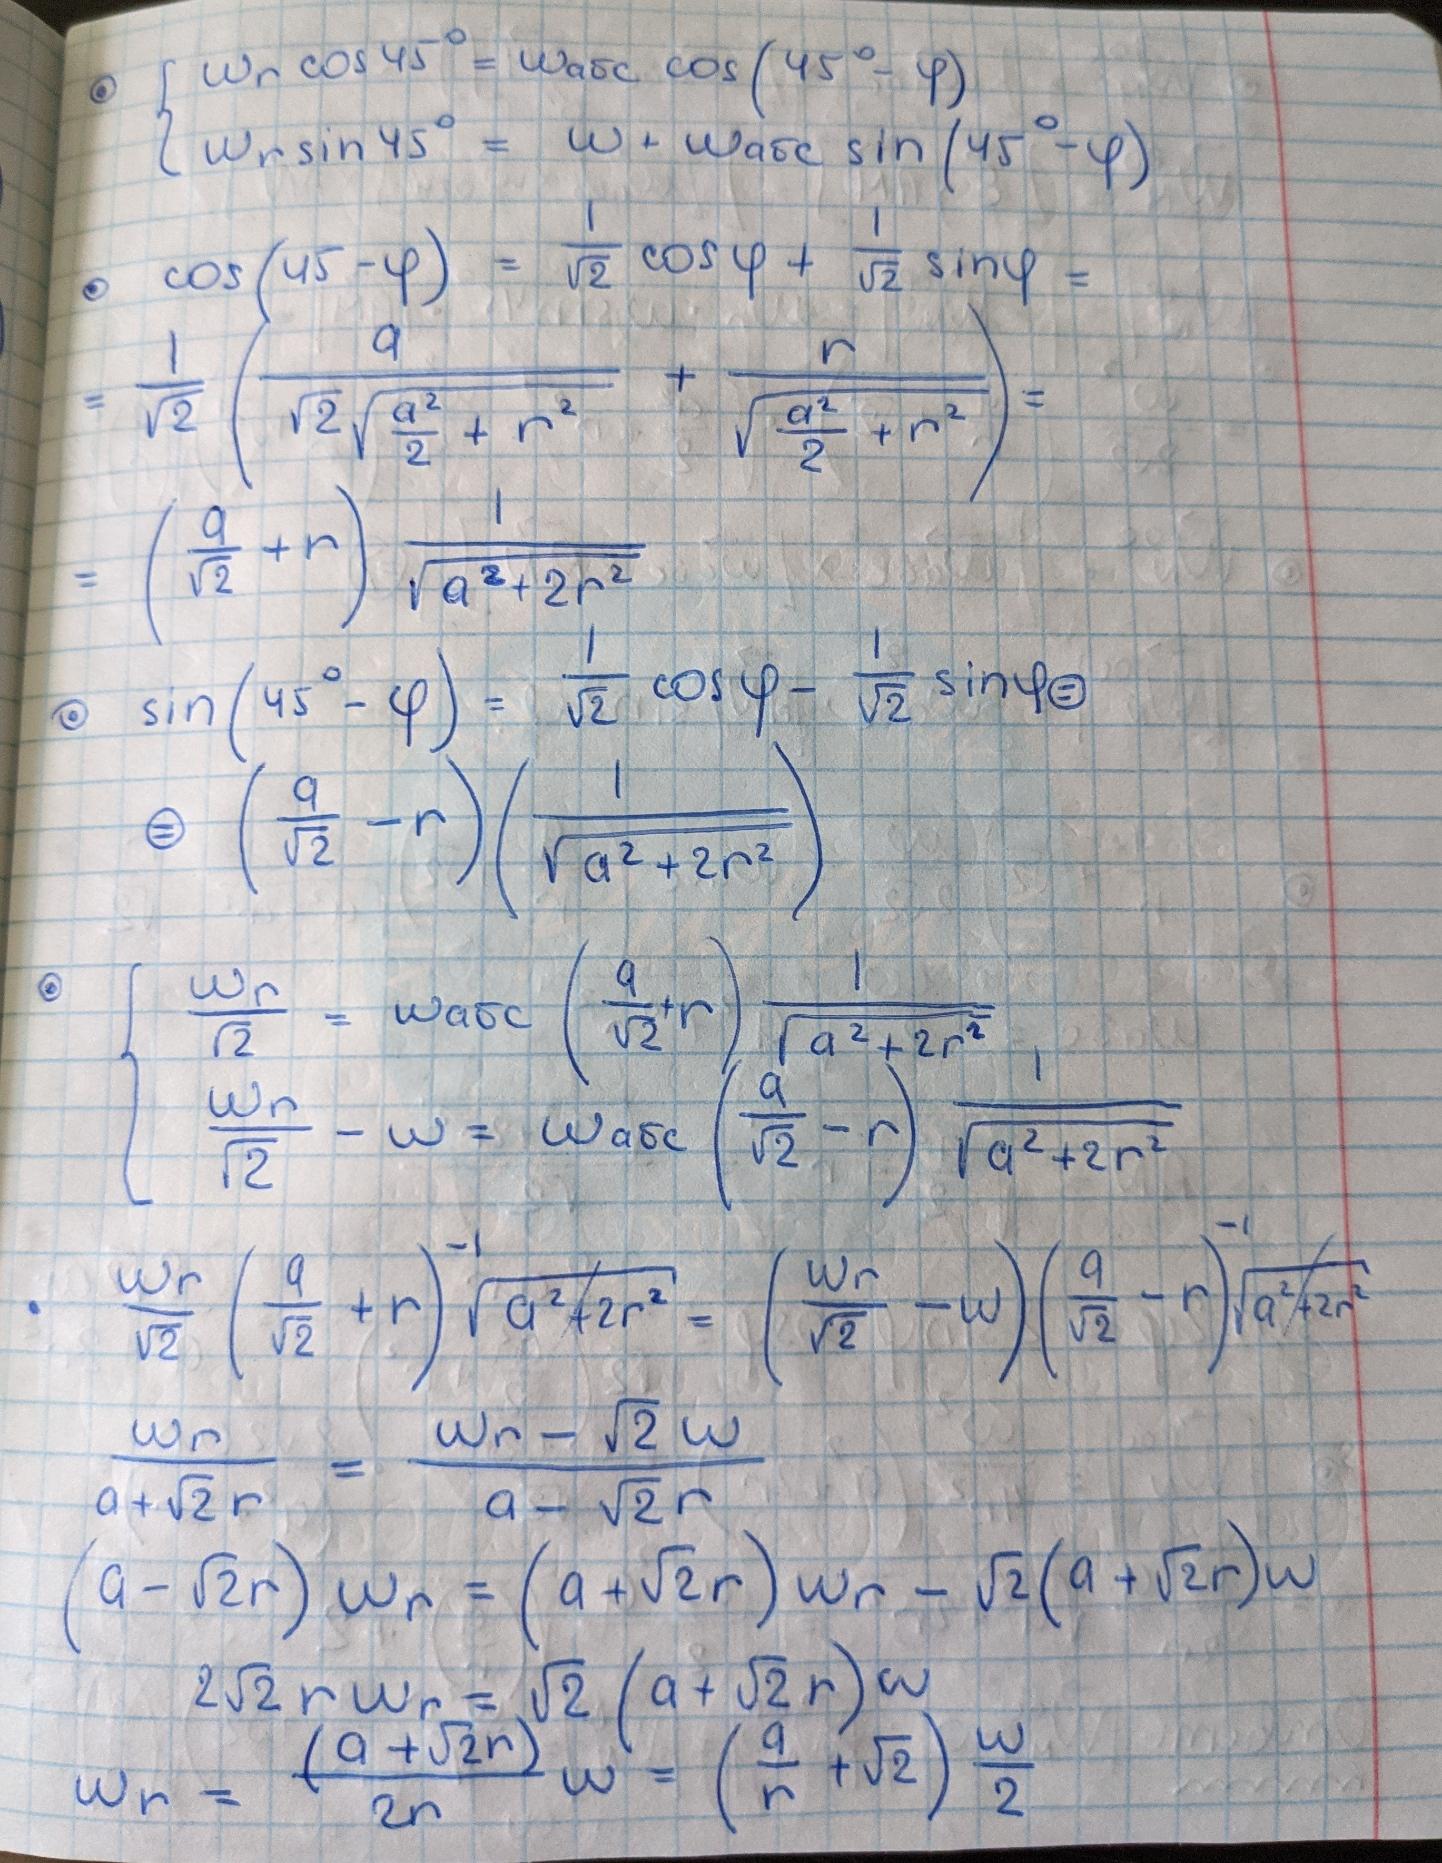 { ωr cos 45° = ωабс cos(45° - φ)
{ ωr sin 45° = ω + ωабс sin(45° - φ)
cos(45 - φ) = 1/√2 cos φ + 1/√2 sin φ =
= 1/√2 (a/(√2 √(a²/2 + r²)) + r/√(a²/2 + r²)) =
= (a/√2 + r) 1/√(a² + 2r²)
sin(45° - φ) = 1/√2 cos φ - 1/√2 sin φ ⊜
⊜ (a/√2 - r)(1/√(a² + 2r²))
{ ωr/√2 = ωабс (a/√2 + r) 1/√(a² + 2r²)
{ ωr/√2 - ω = ωабс (a/√2 - r) 1/√(a² + 2r²)
ωr/√2 (a/√2 + r)⁻¹ √(a² + 2r²) = (ωr/√2 - ω)(a/√2 - r)⁻¹ √(a² + 2r²)
ωr/(a + √2 r) = (ωr - √2 ω)/(a - √2 r)
(a - √2 r) ωr = (a + √2 r) ωr - √2 (a + √2 r) ω
2√2 r ωr = √2 (a + √2 r) ω
ωr = (a + √2 r)/2r ω = (a/r + √2) ω/2